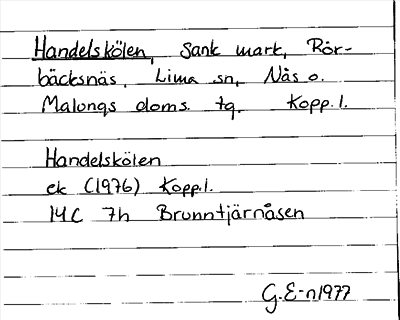 Handelskölen, Sank mark, Rör-
bäcksnäs, Lima sn, Nås o.
Malungs doms. tg. Kopp. l.
Handelskölen
ek (1976) Kopp.l.
14C 7h Brunntjärnåsen
G.E-n1977